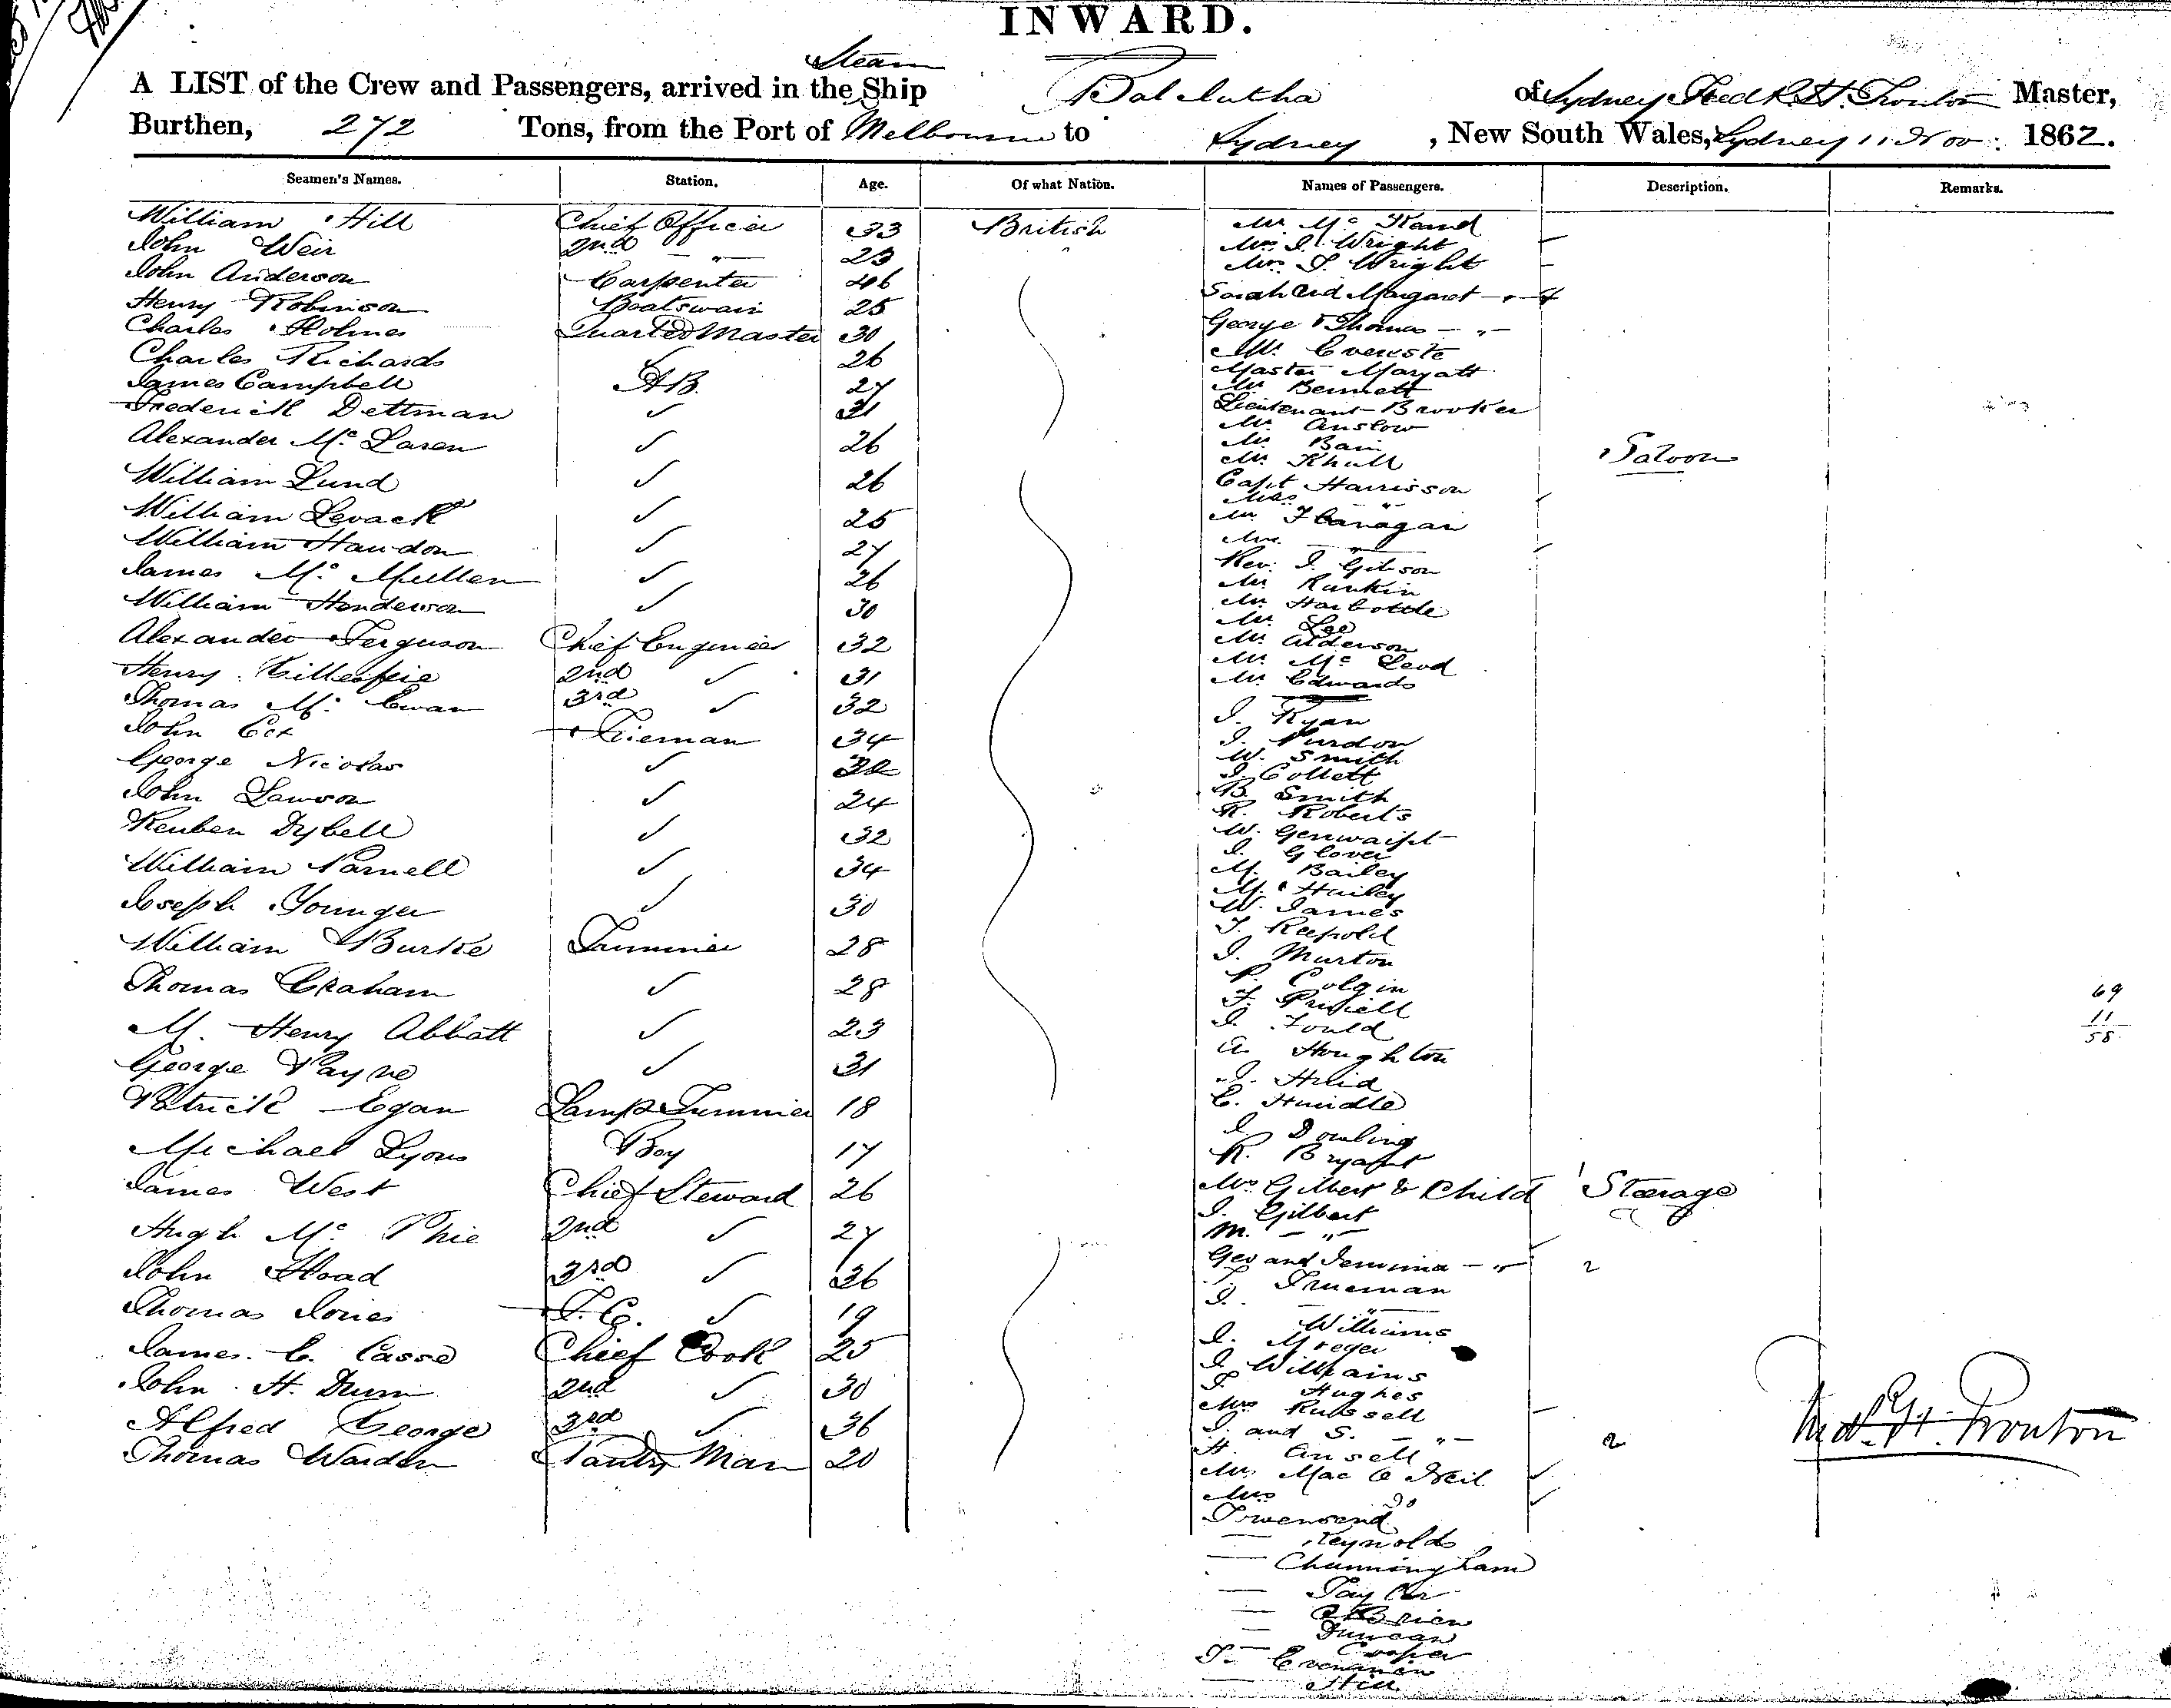 INWARD.
Steam
A LIST of the Crew and Passengers, arrived in the Ship Balclutha of Sydney Fredk H. Trouton Master,
Burthen, 272 Tons, from the Port of Melbourne to Sydney, New South Wales, Sydney 11 Nov: 1862.
Seamen's Names. Station. Age. Of what Nation. Names of Passengers. Description. Remarks.
William Hill Chief Officer 33 British
John Weir 2nd — " — 23 "
John Anderson Carpenter 46
Henry Robinson Boatswain 25
Charles Holmes Quarter Master 30
Charles Richards 26
James Campbell AB. 27
Frederick Dettman ✓ 31
Alexander Mc Laren ✓ 26
William Lund ✓ 26
William Levack ✓ 25
William Haudon ✓ 27
James Mc Mullen ✓ 26
William Henderson ✓ 30
Alexander Ferguson Chief Engineer 32
Henry Gillespie 2nd ✓ 31
Thomas Mc Ewan 3rd ✓ 32
John Fireman 34
George Nicolas ✓
John Lawson ✓ 24
Reuben Dybell ✓ 32
William Parnell ✓ 34
Joseph Younger ✓ 30
William Burke Trimmer 28
Thomas Graham ✓ 28
M. Henry Abbott ✓ 23
George Payne ✓ 31
Patrick Egan Lamp Trimmer 18
Michael Lyons Boy 17
James West Chief Steward 26
Hugh Mc Phie 2nd ✓ 27
John Hoad 3rd ✓ 36
Thomas Jones ✓ 19
James. C. Casse Chief Cook 25
John H. Dunn 2nd ✓ 30
Alfred George 3rd ✓ 36
Thomas Warden Pantry Man 20
Mr Mc
Mrs J. Wright
Mrs S. Wright
Sarah and Margaret — " —
George & Thomas — " —
Mr.
Master Maryatt
Mr Bennett
Lieutenant Brooker
Mr Anslow
Mr Bain
Mr Khull
Saloon
Capt Harrisson
Mrs "
Mr Flanagan
Mrs "
Rev: J. Gibson
Mr Rankin
Mr Harbottle
Mr Lee
Mr Alderson
Mr Mc Leod
Mr Edwards
J. Ryan
J. Purdon
W. Smith
J. Collett
B. Smith
R. Roberts
W.
J. Glover
M. Bailey
M. Hailey
W. James
J.
J. Murton
P. Colgin
F.
J. Fould
A. Houghton
J.
C. Hindle
J. Dowling
R. Bryant
Mrs Gilbert & Child Steerage
J. Gilbert
M. — " —
Geo and Jemima — " — 2
J. Trueman
J. — " —
Williams
J.
J. Williams
J. Hughes
Mrs Russell
J. and S. — " — 2
H. Ansell
Mr. Mac O Neil
Mrs Do
Townsend
— Reynolds
— Channingham
— Taylor
— O'Brien
— Duncan
— Cooper
T.
69
11
58
Fredk. H. Trouton